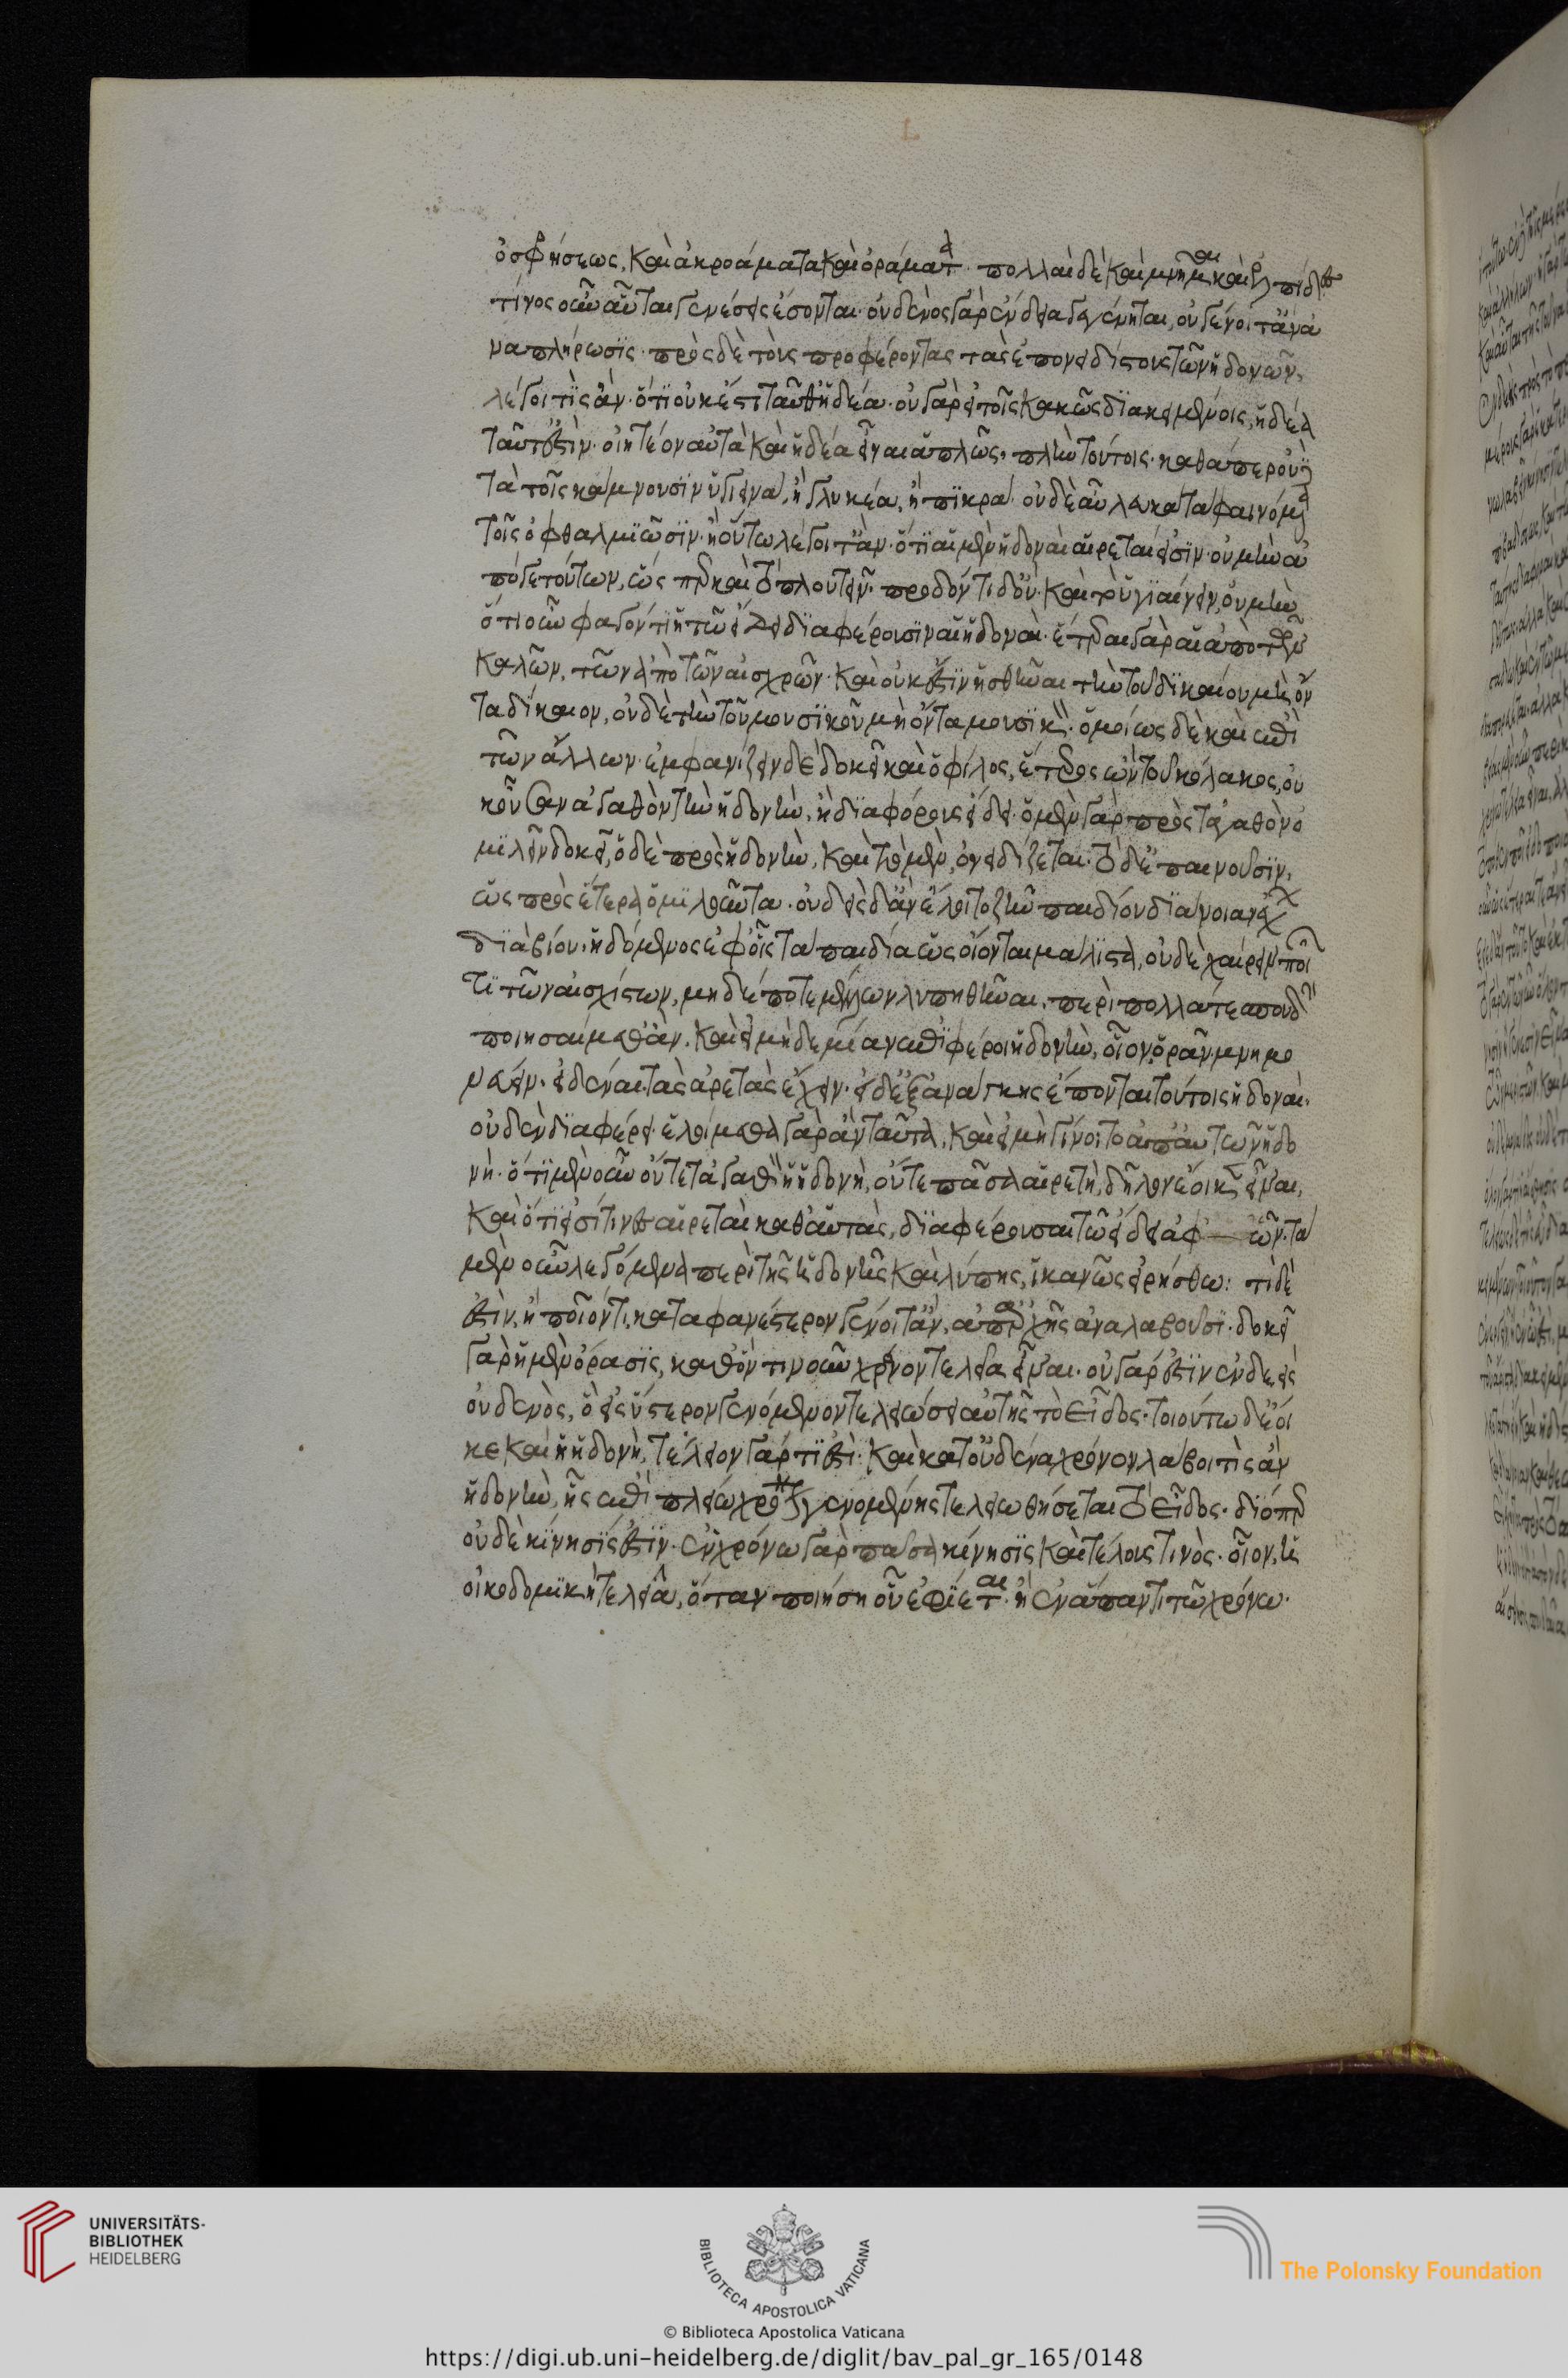 ὀσφρήσεως, καὶ ἀκροάματα καὶ ὁράματα. πολλαὶ δὲ καὶ μνῆμαι καὶ ἐλπίδες
τίνος οὖν αὗται γενέσεις ἔσονται. οὐδενὸς γὰρ ἔνδεια γεγένηται, οὗ γένοιτ' ἂν ἀ
ναπλήρωσις. πρὸς δὲ τοὺς προφέροντας τὰς ἐπονειδίστους τῶν ἡδονῶν,
λέγοι τις ἄν. ὅτι οὐκ ἔστι ταῦθ' ἡδέα. οὐ γὰρ εἰ τοῖς κακῶς διακειμένοις, ἡδέα
ταῦτ' ἐστὶν. οἰητέον αὐτὰ καὶ ἡδέα εἶναι ἁπλῶς. πλὴν τούτοις. καθάπερ οὐδὲ
τὰ τοῖς κάμνουσιν ὑγιεινὰ, ἢ γλυκέα, ἢ πικρὰ οὐδὲ αὖ λευκὰ τὰ φαινόμενα
τοῖς ὀφθαλμιῶσιν. ἢ οὕτω λέγοιτ' ἄν. ὅτι αἱ μὲν ἡδοναὶ αἱρεταί εἰσιν. οὐ μὴν ἀ
πό γε τούτων, ὥσπερ καὶ τὸ πλουτεῖν. προδόντι δ' οὔ. καὶ τὸ ὑγιαίνειν, οὐ μὴν
ὁτιοῦν φαγόντι ἢ τῷ εἴδει διαφέρουσιν αἱ ἡδοναί. ἕτεραι γὰρ αἱ ἀπὸ τῶν
καλῶν, τῶν ἀπὸ τῶν αἰσχρῶν. καὶ οὐκ ἔστιν ἡσθῆναι τὴν τοῦ δικαίου μὴ ὄν
τα δίκαιον, οὐδὲ τὴν τοῦ μουσικοῦ μὴ ὄντα μουσικὸν. ὁμοίως δὲ καὶ ἐπὶ
τῶν ἄλλων. ἐμφανίζειν δὲ δοκεῖ καὶ ὁ φίλος, ἕτερος ὢν τοῦ κόλακος, οὐ
κ οὖσαν ἀγαθὸν τὴν ἡδονὴν, ἢ διαφόρους εἴδει. ὁ μὲν γὰρ πρὸς τἀγαθὸν ὁ
μιλεῖν δοκεῖ, ὁ δὲ πρὸς ἡδονὴν, καὶ τὸ μὲν, ὀνειδίζεται. τὸ δ' ἐπαινοῦσιν,
ὡς πρὸς ἕτερα ὁμιλοῦντα. οὐδείς δ' ἂν ἕλοιτο ζῆν παιδίου διάνοιαν ἔχων
διὰ βίου. ἡδόμενος ἐφ' οἷς τὰ παιδία ὡς οἴονται μάλιστα, οὐδὲ χαίρειν ποιῶν
τι τῶν αἰσχίστων, μηδέποτε μέλλων λυπηθῆναι. περὶ πολλά τε σπουδὴν
ποιησαίμεθ' ἂν, καὶ εἰ μηδεμίαν ἐπιφέροι ἡδονὴν, οἷον, ὁρᾶν, μνημο
νεύειν. εἰδέναι. τὰς ἀρετὰς ἔχειν. εἰ δ' ἐξ ἀνάγκης ἕπονται τούτοις ἡδοναί.
οὐδὲν διαφέρει. ἑλοίμεθα γὰρ ἂν ταῦτα, καὶ εἰ μὴ γίνοιτο ἀπ' αὐτῶν ἡδο
νή. ὅτι μὲν οὖν οὔτε τἀγαθὸν ἡ ἡδονὴ, οὔτε πᾶσα αἱρετὴ, δῆλον ἔοικεν εἶναι,
καὶ ὅτι εἰσί τινες αἱρεταὶ καθ' αὑτὰς, διαφέρουσαι τῷ εἴδει ἀφ' ὧν. τὰ
μὲν οὖν λεγόμενα περὶ τῆς ἡδονῆς καὶ λύπης, ἱκανῶς εἰρήσθω: τί δὲ
ἐστὶν, ἢ ποῖόν τι, καταφανέστερον γένοιτ' ἂν, ἀπ' ἀρχῆς ἀναλαβοῦσι. δοκεῖ
γὰρ ἡ μὲν ὅρασις, καθ' ὅν τιν' οὖν χρόνον τελεία εἶναι. οὐ γάρ ἐστιν ἐνδεὴς
οὐδενὸς, ὃ εἰς ὕστερον γενόμενον τελειώσει αὐτῆς τὸ εἶδος. τοιούτῳ δ' ἔοι
κε καὶ ἡ ἡδονὴ, τέλειον γάρ τι ἐστὶ. καὶ κατ' οὐδένα χρόνον λάβοι τις ἂν
ἡδονὴν, ἧς ἐπὶ πλείω χρόνον γενομένης τελειωθήσεται τὸ εἶδος. διόπερ
οὐδὲ κίνησίς ἐστιν. ἐν χρόνῳ γὰρ πᾶσα κίνησις καὶ τέλους τινὸς. οἷον, ἡ
οἰκοδομικὴ τελεία, ὅταν ποιήσῃ οὗ ἐφίεται. ἢ ἐν ἅπαντι τῷ χρόνῳ.
UNIVERSITÄTS-
BIBLIOTHEK
HEIDELBERG
BIBLIOTECA APOSTOLICA VATICANA
The Polonsky Foundation
© Biblioteca Apostolica Vaticana
https://digi.ub.uni-heidelberg.de/diglit/bav_pal_gr_165/0148